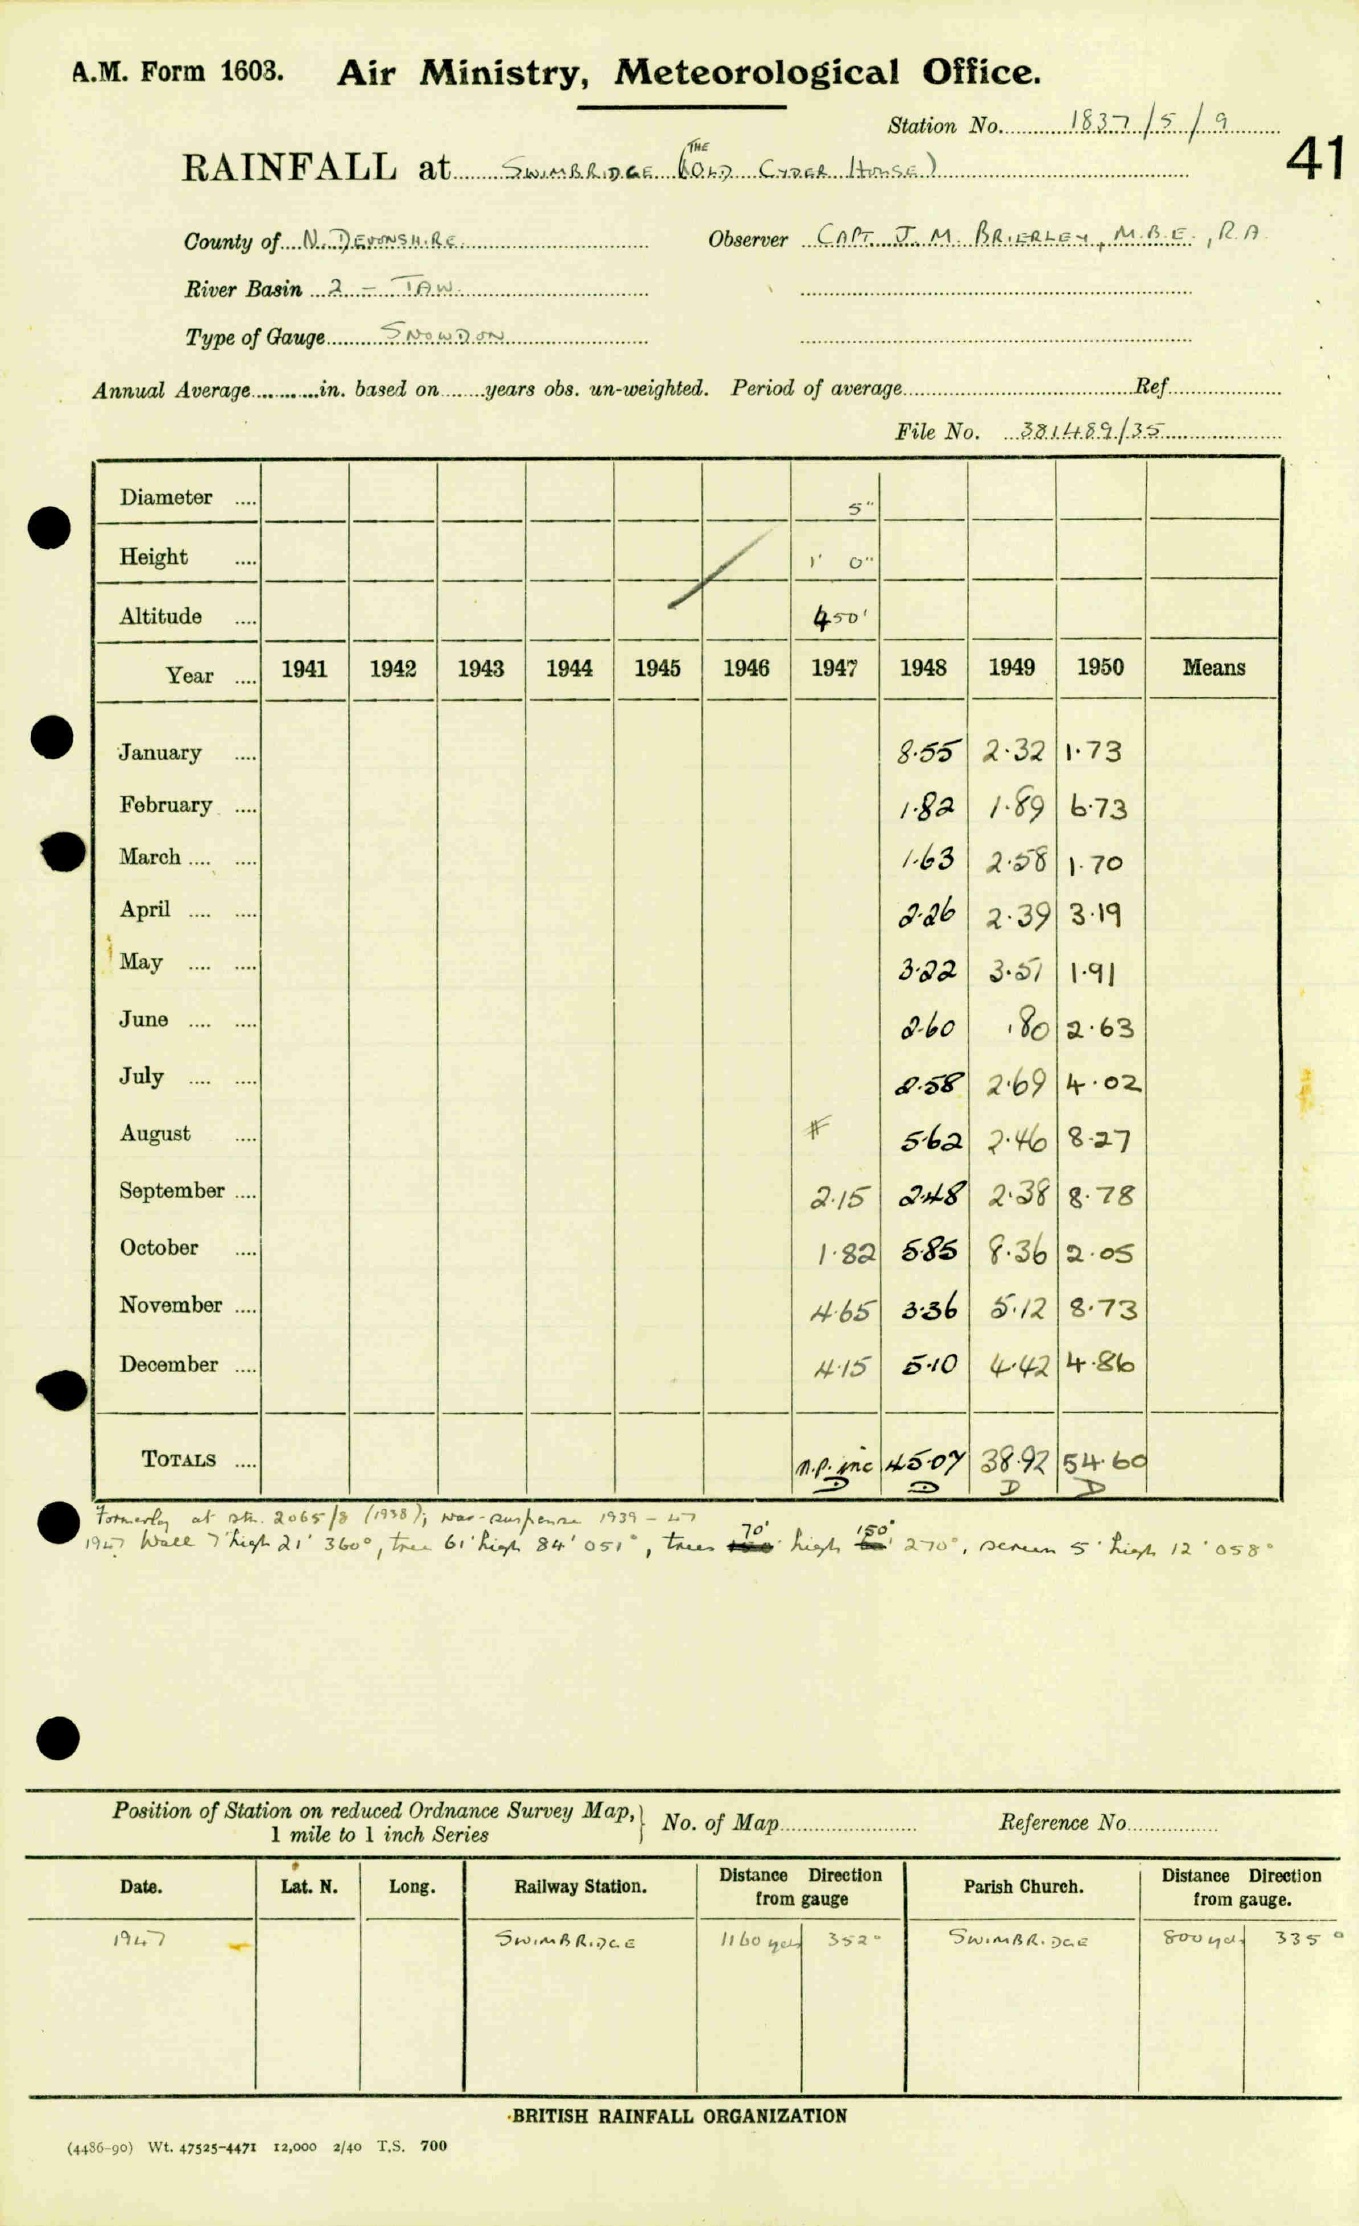 A.M. Form 1603. Air Ministry, Meteorological Office.
Station No. 1837/5/9
41
RAINFALL at SWIMBRIDGE (THE OLD CYDER HOUSE)
County of N. DEVONSHIRE Observer CAPT. J. M. BRIERLEY, M.B.E., R.A.
River Basin 2 - TAW.
Type of Gauge SNOWDON
Annual Average............in. based on.......years obs. un-weighted. Period of average........Ref........
File No. 381489/35
Diameter .... 5"
Height .... 1' 0"
Altitude .... 450'
Year .... 1941 1942 1943 1944 1945 1946 1947 1948 1949 1950 Means
January .... 8.55 2.32 1.73
February .... 1.82 1.89 6.73
March .... .... 1.63 2.58 1.70
April .... .... 2.26 2.39 3.19
May .... .... 3.22 3.51 1.91
June .... .... 2.60 .80 2.63
July .... .... 2.58 2.69 4.02
August .... # 5.62 2.46 8.27
September .... 2.15 2.48 2.38 8.78
October .... 1.82 5.85 8.36 2.05
November .... 4.65 3.36 5.12 8.73
December .... 4.15 5.10 4.42 4.86
TOTALS .... n.p. inc 45.07 38.92 54.60
D D D D
Formerly at stn. 2065/8 (1938); war-suspense 1939 - 47
1947 Wall 7' high 21' 360°, tree 61' high 84' 051°, trees 70' high 150' 270°, screen 5' high 12' 058°
Position of Station on reduced Ordnance Survey Map, 1 mile to 1 inch Series } No. of Map........ Reference No........
Date. Lat. N. Long. Railway Station. Distance Direction from gauge Parish Church. Distance Direction from gauge.
1947 SWIMBRIDGE 1160 yds 352° SWIMBRIDGE 800 yds 335°
BRITISH RAINFALL ORGANIZATION
(4486-90) Wt. 47525-4471 12,000 2/40 T.S. 700